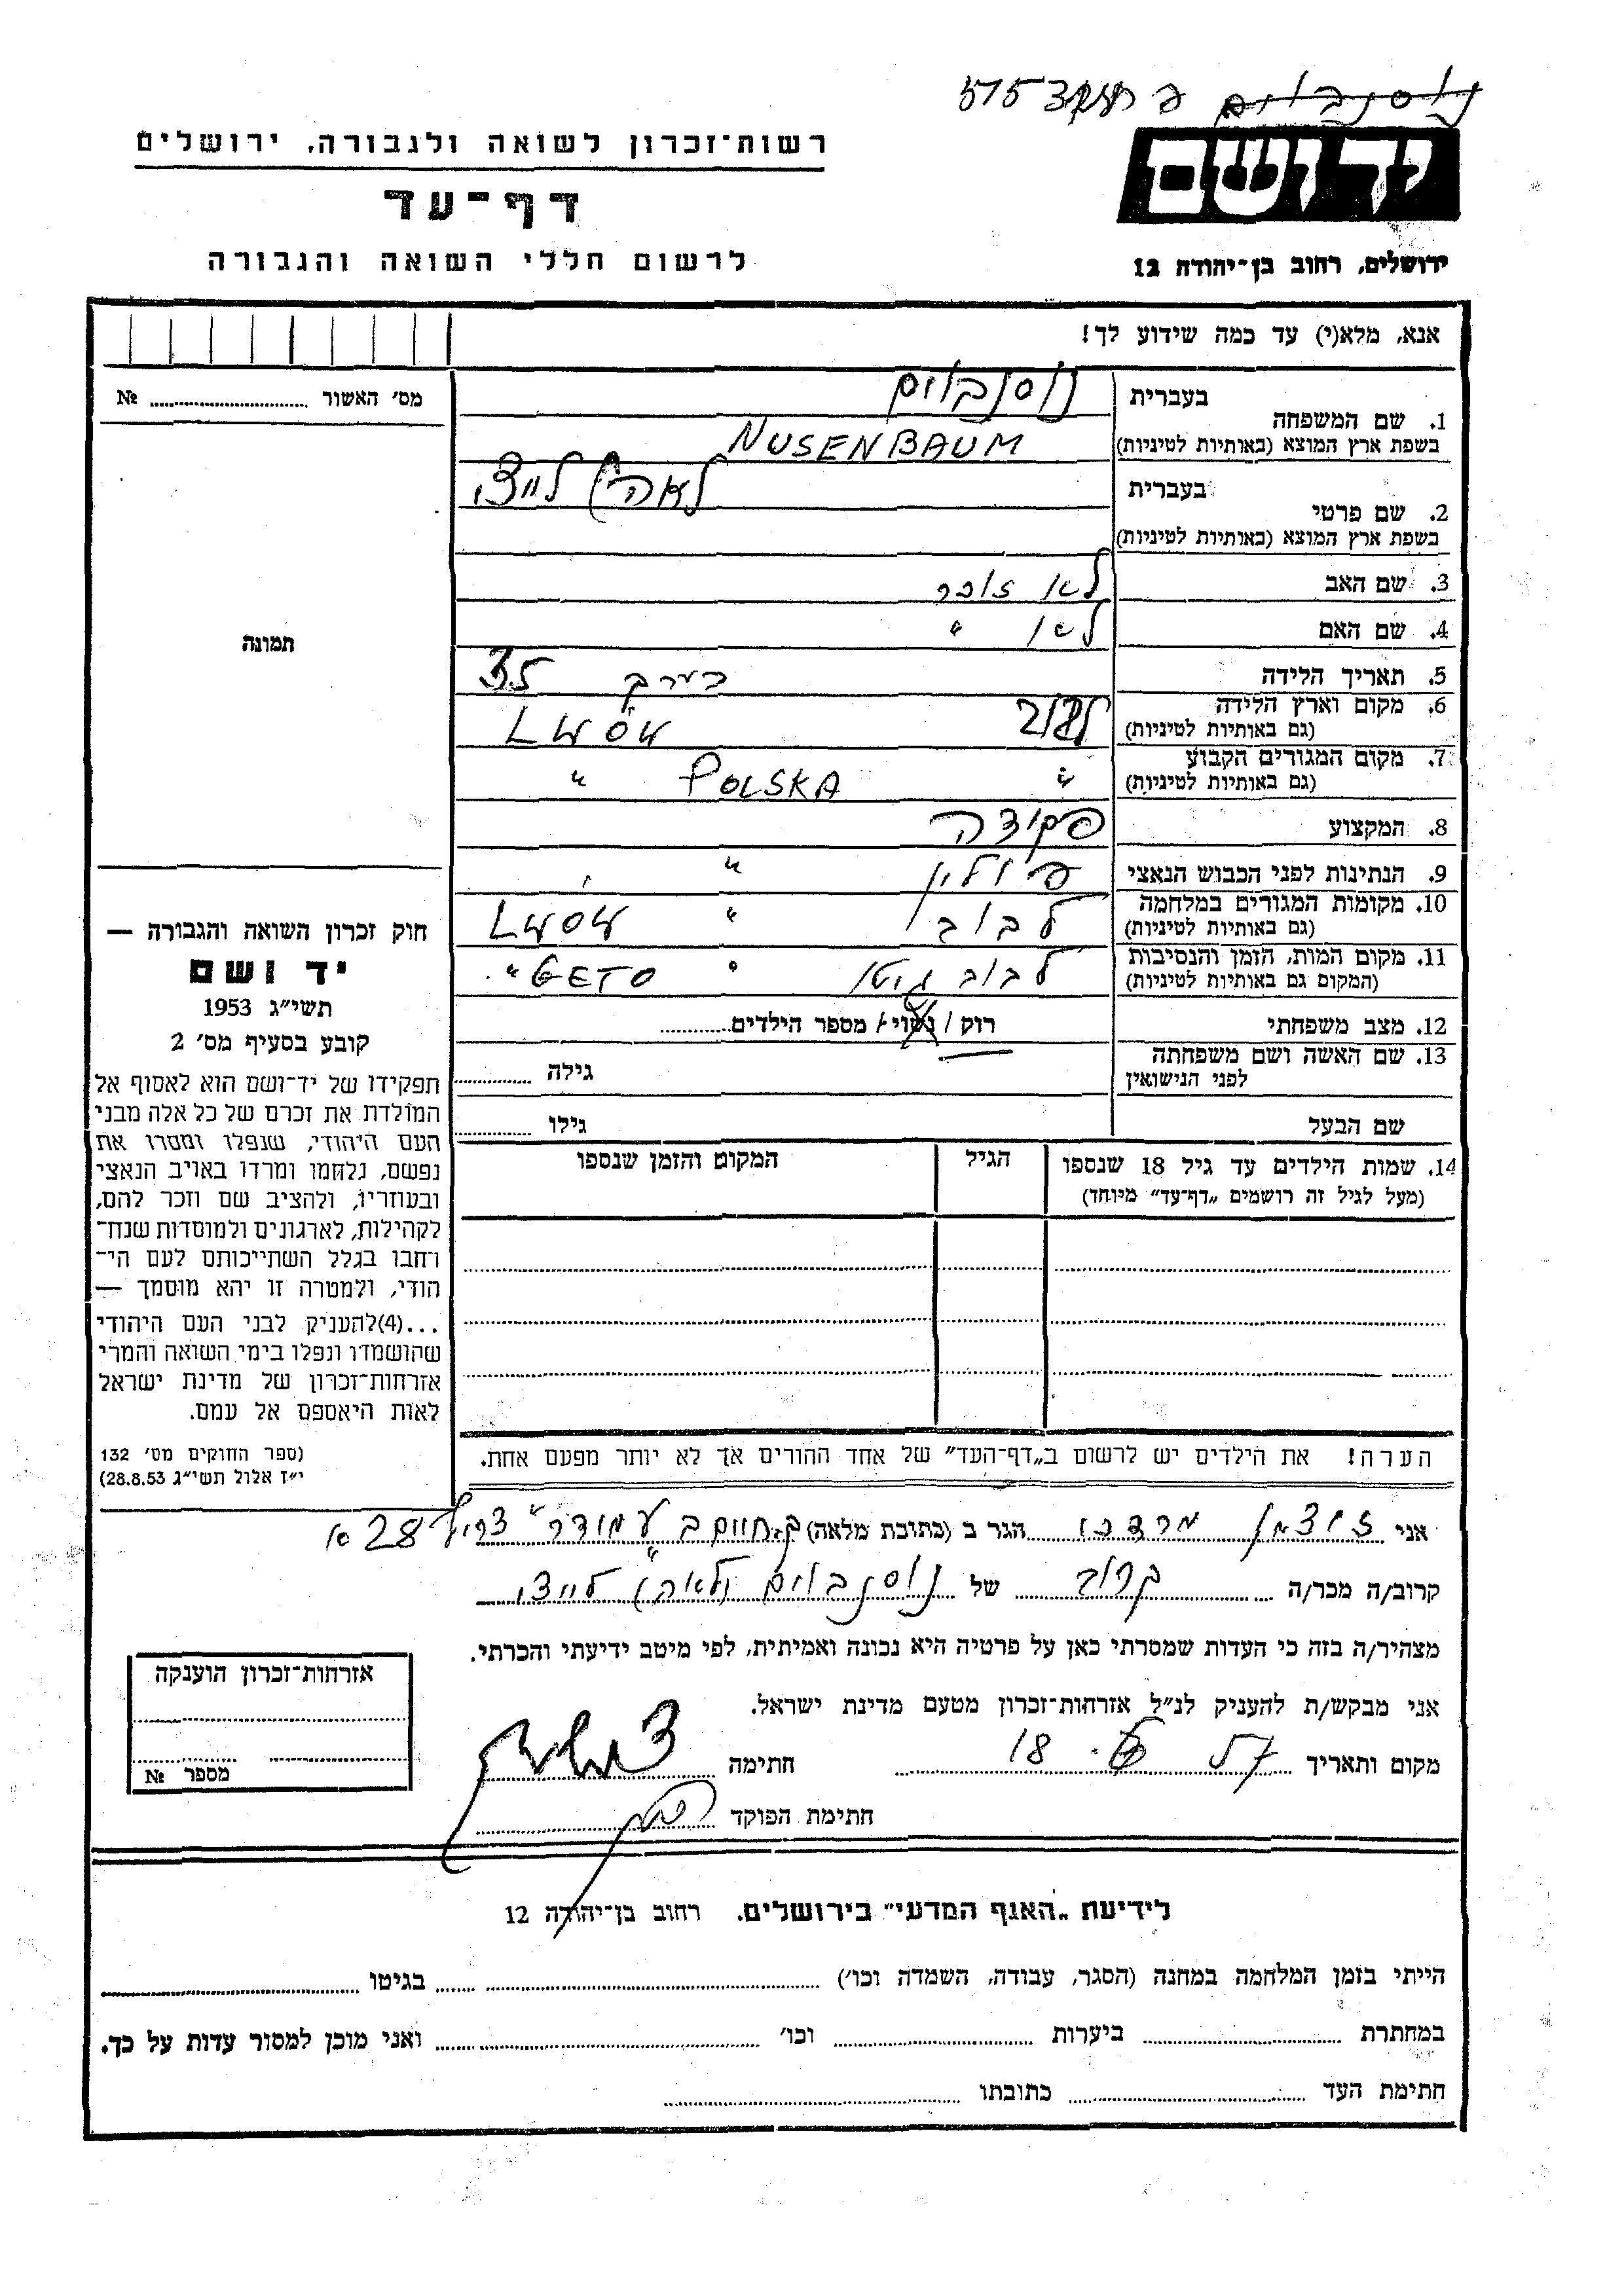 נוסנבוים
יד ושם
ירושלים, רחוב בן־יהודה 12
רשות־זכרון לשואה ולגבורה, ירושלים
דף־עד
לרשום חללי השואה והגבורה
אנא, מלא(י) עד כמה שידוע לך!
מס׳ האשור № ........
1. שם המשפחה
בעברית נוסנבוים
בשפת ארץ המוצא (באותיות לטיניות) NUSENBAUM
2. שם פרטי
בעברית לאה)
בשפת ארץ המוצא (באותיות לטיניות)
3. שם האב לא זוכר
4. שם האם לא "
5. תאריך הלידה בערך 35
6. מקום וארץ הלידה
(גם באותיות לטיניות) LWÓW
7. מקום המגורים הקבוע
(גם באותיות לטיניות) " POLSKA "
8. המקצוע פקידה
9. הנתינות לפני הכבוש הנאצי פולין "
10. מקומות המגורים במלחמה
(גם באותיות לטיניות) לבוב " LWOW
11. מקום המות, הזמן והנסיבות
(המקום גם באותיות לטיניות) לבוב גיטו " GETO "
12. מצב משפחתי רוק / נשוי / מספר הילדים........
13. שם האשה ושם משפחתה
לפני הנישואין גילה ........
שם הבעל גילו ........
14. שמות הילדים עד גיל 18 שנספו
(מעל לגיל זה רושמים „דף־עד״ מיוחד)
הגיל
המקום והזמן שנספו
הערה! את הילדים יש לרשום ב„דף־העד״ של אחד ההורים אך לא יותר מפעם אחת.
תמונה
חוק זכרון השואה והגבורה —
יד ושם
תשי״ג 1953
קובע בסעיף מס׳ 2
תפקידו של יד־ושם הוא לאסוף אל
המולדת את זכרם של כל אלה מבני
העם היהודי, שנפלו ומסרו את
נפשם, נלחמו ומרדו באויב הנאצי
ובעוזריו, ולהציב שם וזכר להם,
לקהילות, לארגונים ולמוסדות שנח־
רחבו בגלל השתייכותם לעם הי־
הודי, ולמטרה זו יהא מוסמך —
...(4)להעניק לבני העם היהודי
שהושמדו ונפלו בימי השואה והמרי
אזרחות־זכרון של מדינת ישראל
לאות היאספם אל עמם.
(ספר החוקים מס׳ 132
י״ז אלול תשי״ג 28.8.53)
אני מרדכי הגר ב (כתובת מלאה) צריף 28 א
קרוב/ה מכר/ה קרוב של נוסנבוים (לאה)
מצהיר/ה בזה כי העדות שמסרתי כאן על פרטיה היא נכונה ואמיתית, לפי מיטב ידיעתי והכרתי.
אני מבקש/ת להעניק לנ״ל אזרחות־זכרון מטעם מדינת ישראל.
מקום ותאריך 18 חתימה
חתימת הפוקד
אזרחות־זכרון הוענקה
מספר №
לידיעת „האגף המדעי״ בירושלים. רחוב בן־יהודה 12
הייתי בזמן המלחמה במחנה (הסגר, עבודה, השמדה וכו׳) ........ בגיטו ........
במחתרת ........ ביערות ........ וכו׳ ........ ואני מוכן למסור עדות על כך.
חתימת העד ........ כתובתו ........